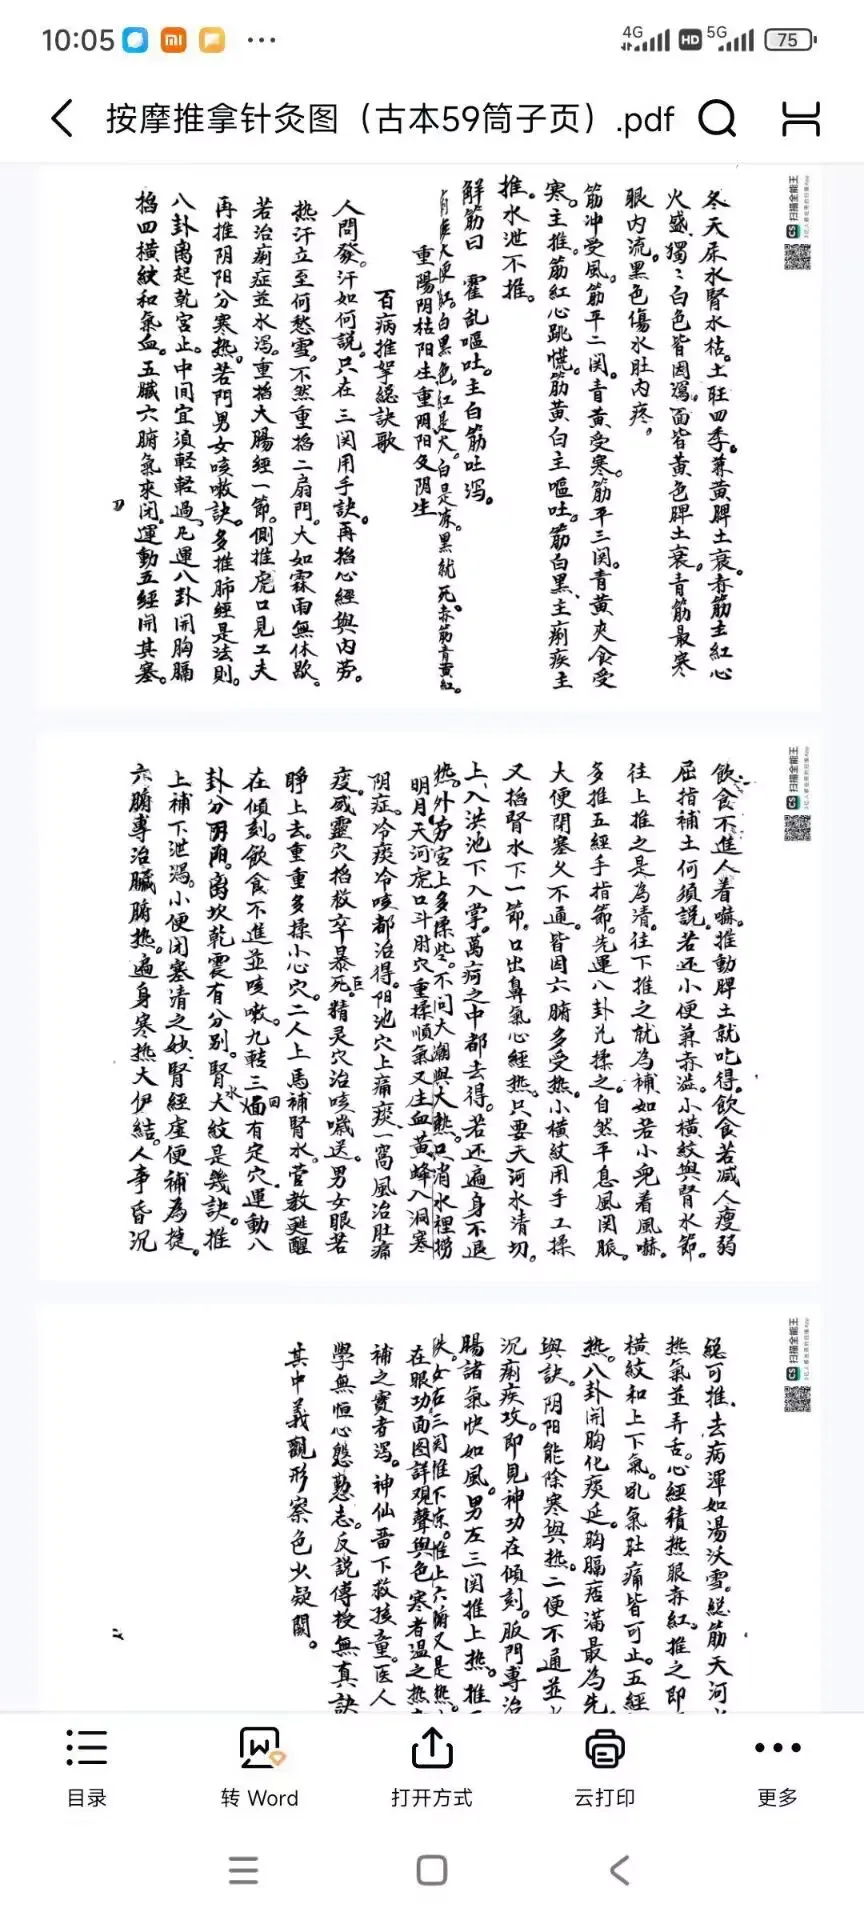 10:05
4G HD 5G 75
按摩推拿针灸图（古本59筒子页）.pdf
扫描全能王
冬天尿水腎水枯。土旺四季。兼黃脾土衰。赤筋主紅心
火盛。獨〻白色皆因瀉。面皆黃色脾土衰。青筋最寒
眼内流。黑色傷水肚内疼。
筋冲受風。筋平二関。青黃受寒。筋平三関。青黃夾食受
寒。主推。筋紅心跳慌。筋黃白主嘔吐。筋白黑、主痢疾主
推。水泄不推。
解筋曰 霍乱嘔吐。主白筋吐瀉。
大便紅。白黑色。紅是火。白是寒。黑就死。赤筋青黃紅。
重陽阴枯阳生重阴阳交阴生
百病推拏總訣歌
人間發。汗如何説。只在三関用手訣。再掐心經與内劳。
热汗立至何愁雪。不然重掐二扇門。大如霖雨無休歇。
若治痢症並水瀉。重掐大腸經一節。側推虎口見工夫
再推阴阳分寒热。若門男女咳嗽訣。多推肺經是法則。
八卦离起乾宮止。中间宜須輕輕過。凡運八卦開胸膈
掐四橫紋和氣血。五臟六腑氣來闭。運動五經開其塞。
扫描全能王
飲食不進人着嚇。推動脾土就吃得。飲食若减人瘦弱
屈指補土何須説。若还小便兼赤澁。小橫紋與腎水節。
往上推之是為清。往下推之就為補。如若小兒着風嚇。
多推五經手指節。先運八卦兊揉之。自然平息風関脈。
大便閉塞久不通。皆因六腑多受热。小橫紋用手工揉
又掐腎水下一節。口出鼻氣心經热。只要天河水清切。
上、入洪池下入掌。萬疴之中都去得。若还遍身不退
热。外劳宮上多揉些。不问大潮與大熱。只消水裡捞
明月天河虎口斗肘穴重揉順氣又生血黃蜂入洞寒
阴症。冷痰冷咳都治得。阳池穴上痛痰、一窩風治肚痛
疫。威靈穴掐救卒暴死。精灵穴治咳嗽送。男女眼若
巨
睜上去。重重多揉小心穴。二人上馬補腎水。管教甦醒
在傾刻。飲食不進並咳嗽。九轉三回有定穴。運動八
卦分阴阳。离坎乾震有分别。腎水大紋是幾訣。推
上補下泄瀉。小便闭塞清之妙、腎經虚便補為捷。
六腑專治臟腑热。遍身寒热大伊結。人事昏沉
扫描全能王
総可推、去病渾如湯沃雪。總筋天河
热氣並弄舌。心經積热眼赤紅。推之即
橫紋和上下氣。吼氣肚痛皆可止。五經
热。八卦開胸化痰延。胸膈痞滿最為先。
與訣。阴阳能除寒與热。二便不通並
沉痢疾攻。即見神功在傾刻。版門專治
腸諸氣快如風。男左三関推上热。推
女右三関推下凉。推上六腑又是热
在眼功面图詳观聲與色寒者温之热
補之實者瀉。神仙畱下救孩童。医人
學無恒心態懃志。反説傳授無真訣
其中義觀形察色少疑關。
目录
转 Word
打开方式
云打印
更多